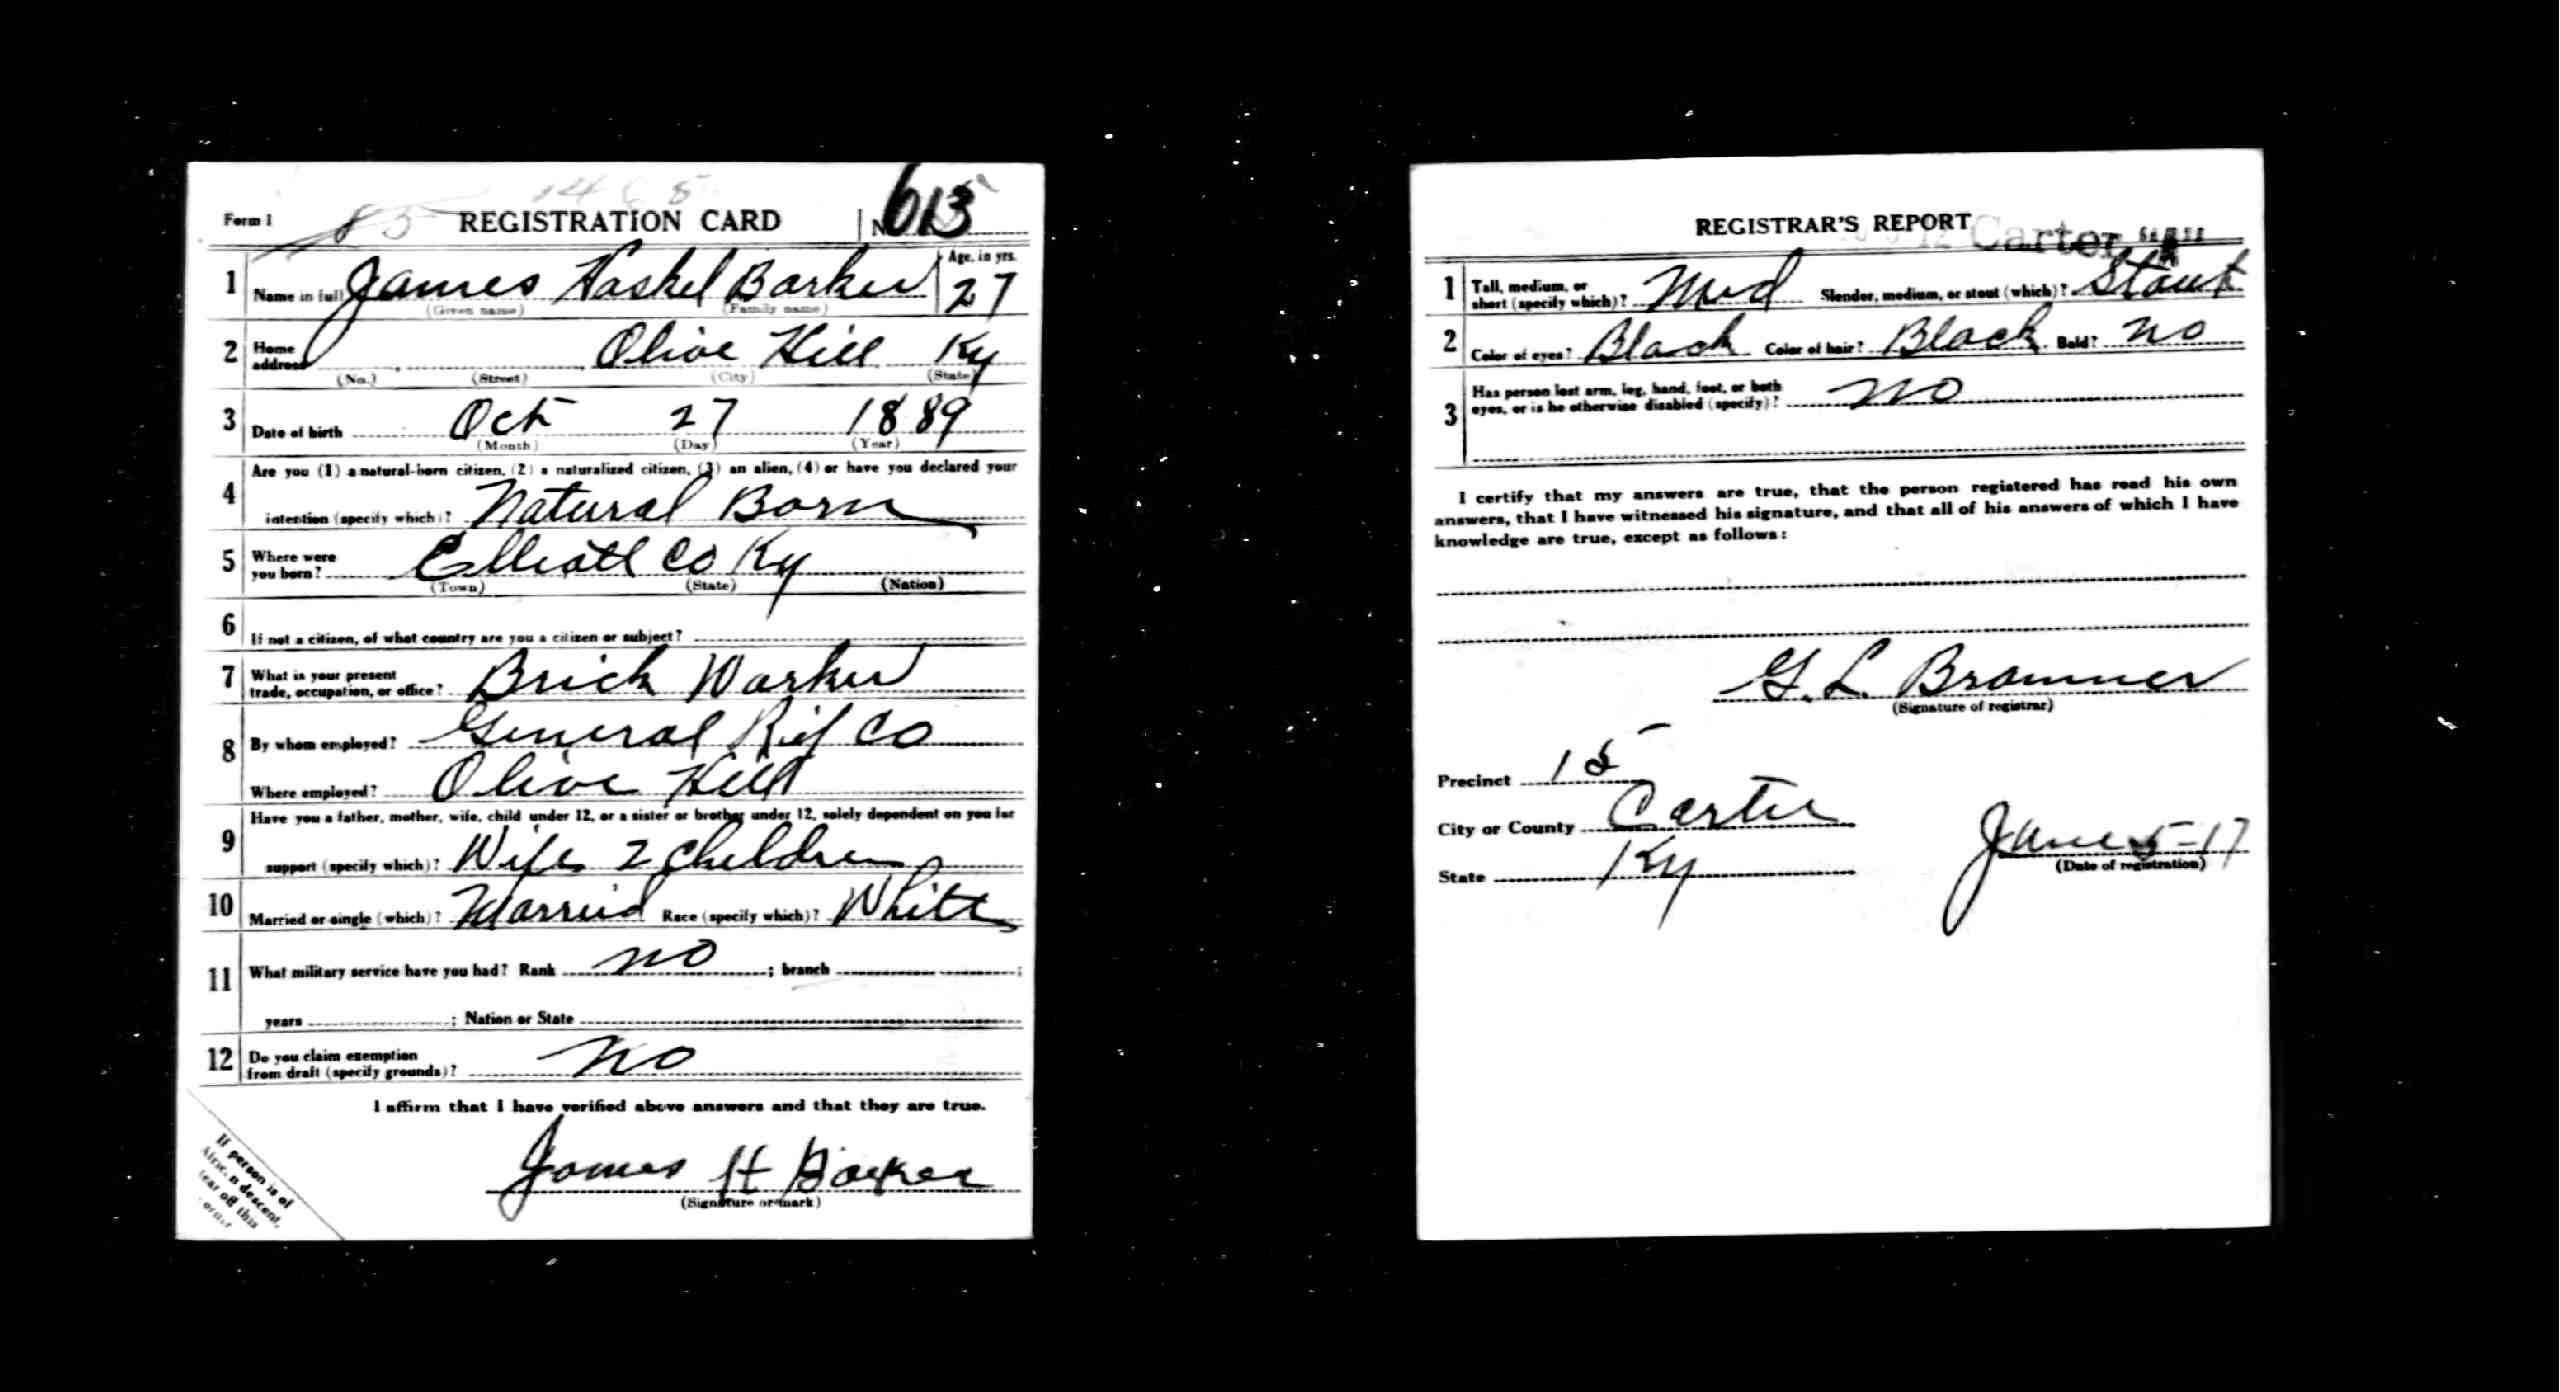 Form 1 85 REGISTRATION CARD No. 613
1 Name in full James Haskel Barker Age, in yrs. 27
(Given name) (Family name)
2 Home address Olive Hill Ky
(No.) (Street) (City) (State)
3 Date of birth Oct 27 1889
(Month) (Day) (Year)
Are you (1) a natural-born citizen, (2) a naturalized citizen, (3) an alien, (4) or have you declared your
4 intention (specify which)? Natural Born
5 Where were you born? Elliott Co Ky
(Town) (State) (Nation)
6 If not a citizen, of what country are you a citizen or subject?
7 What is your present trade, occupation, or office? Brick Worker
8 By whom employed? General Rif Co
Where employed? Olive Hill
Have you a father, mother, wife, child under 12, or a sister or brother under 12, solely dependent on you for
9 support (specify which)? Wife 2 children
10 Married or single (which)? Married Race (specify which)? White
11 What military service have you had? Rank no ; branch ;
years ; Nation or State
12 Do you claim exemption from draft (specify grounds)? no
I affirm that I have verified above answers and that they are true.
James H Barker
(Signature or mark)
If person is of
African descent,
tear off this
corner
REGISTRAR'S REPORT Carter
1 Tall, medium, or short (specify which)? Med Slender, medium, or stout (which)? Stout
2 Color of eyes? Black Color of hair? Black Bald? no
3 Has person lost arm, leg, hand, foot, or both eyes, or is he otherwise disabled (specify)? no
I certify that my answers are true, that the person registered has read his own
answers, that I have witnessed his signature, and that all of his answers of which I have
knowledge are true, except as follows:
G. L. Brammer
(Signature of registrar)
Precinct 15
City or County Carter
State Ky
June 5-17
(Date of registration)